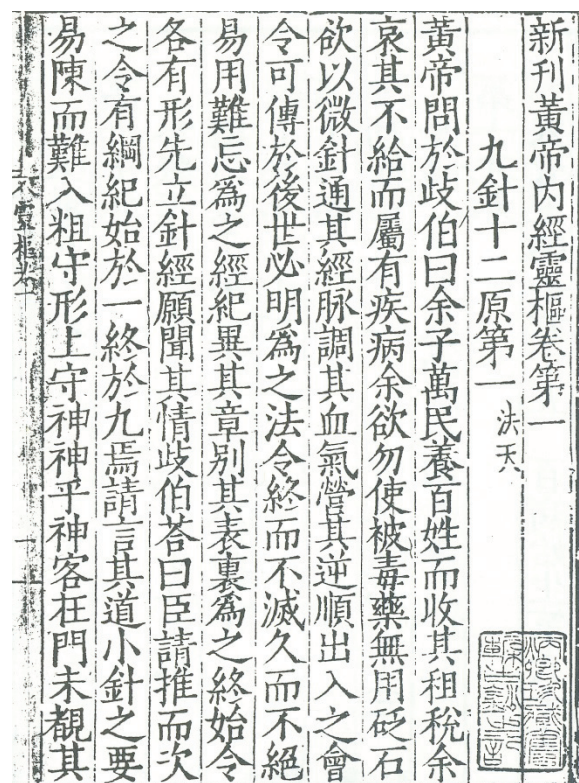 新刊黃帝内經靈樞卷第一
九針十二原第一 法天
黃帝問於歧伯曰余子萬民養百姓而收其租稅余
哀其不給而屬有疾病余欲勿使被毒藥無用砭石
欲以微針通其經脉調其血氣營其逆順出入之會
令可傳於後世必明爲之法令終而不滅久而不絕
易用難忘爲之經紀異其章別其表裏爲之終始令
各有形先立針經願聞其情歧伯荅曰臣請推而次
之令有綱紀始於一終於九焉請言其道小針之要
易陳而難入粗守形上守神神乎神客在門未覩其
靈樞卷一